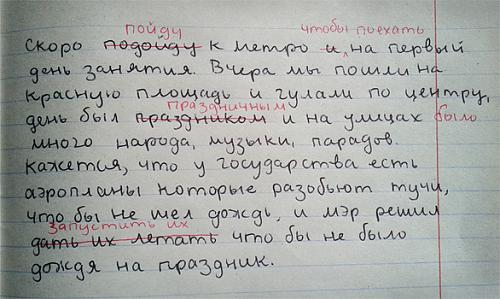 пойду чтобы поехать
Скоро подойду к метро и на первый
день занятия. Вчера мы пошли на
красную площадь и гулали по центру,
праздничным
день был праздником и на улицах было
много народа, музыки, парадов.
кажется, что у государства есть
аэропланы которые разобьют тучи,
что бы не шел дождь, и мэр решил
запустить их
дать их летать что бы не было
дождя на праздник.